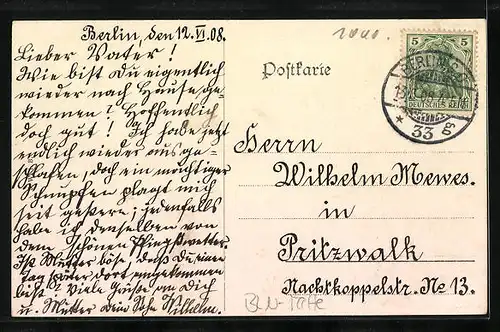 Berlin, den 12. VI. 08.
Lieber Vater!
Wie bist du eigentlich
wieder nach Hause ge-
kommen? Hoffentlich
doch gut! Ich habe jetzt
endlich wieder ausge-
schlafen, doch ein mächtiger
Schnupfen plagt mich
seit gestern; jedenfalls
habe ich denselben von
dem schönen Pfingstwetter.
Ist Mutter böse, daß Du einen
Tag später dort angekommen
bist? Viele Grüße an dich
u. Mutter Dein Sohn Wilhelm.
Postkarte
5 5
DEUTSCHES REICH
BERLIN
33
Herrn
Wilhelm Mewes.
in
Pritzwalk
Nachtkoppelstr. No 13.